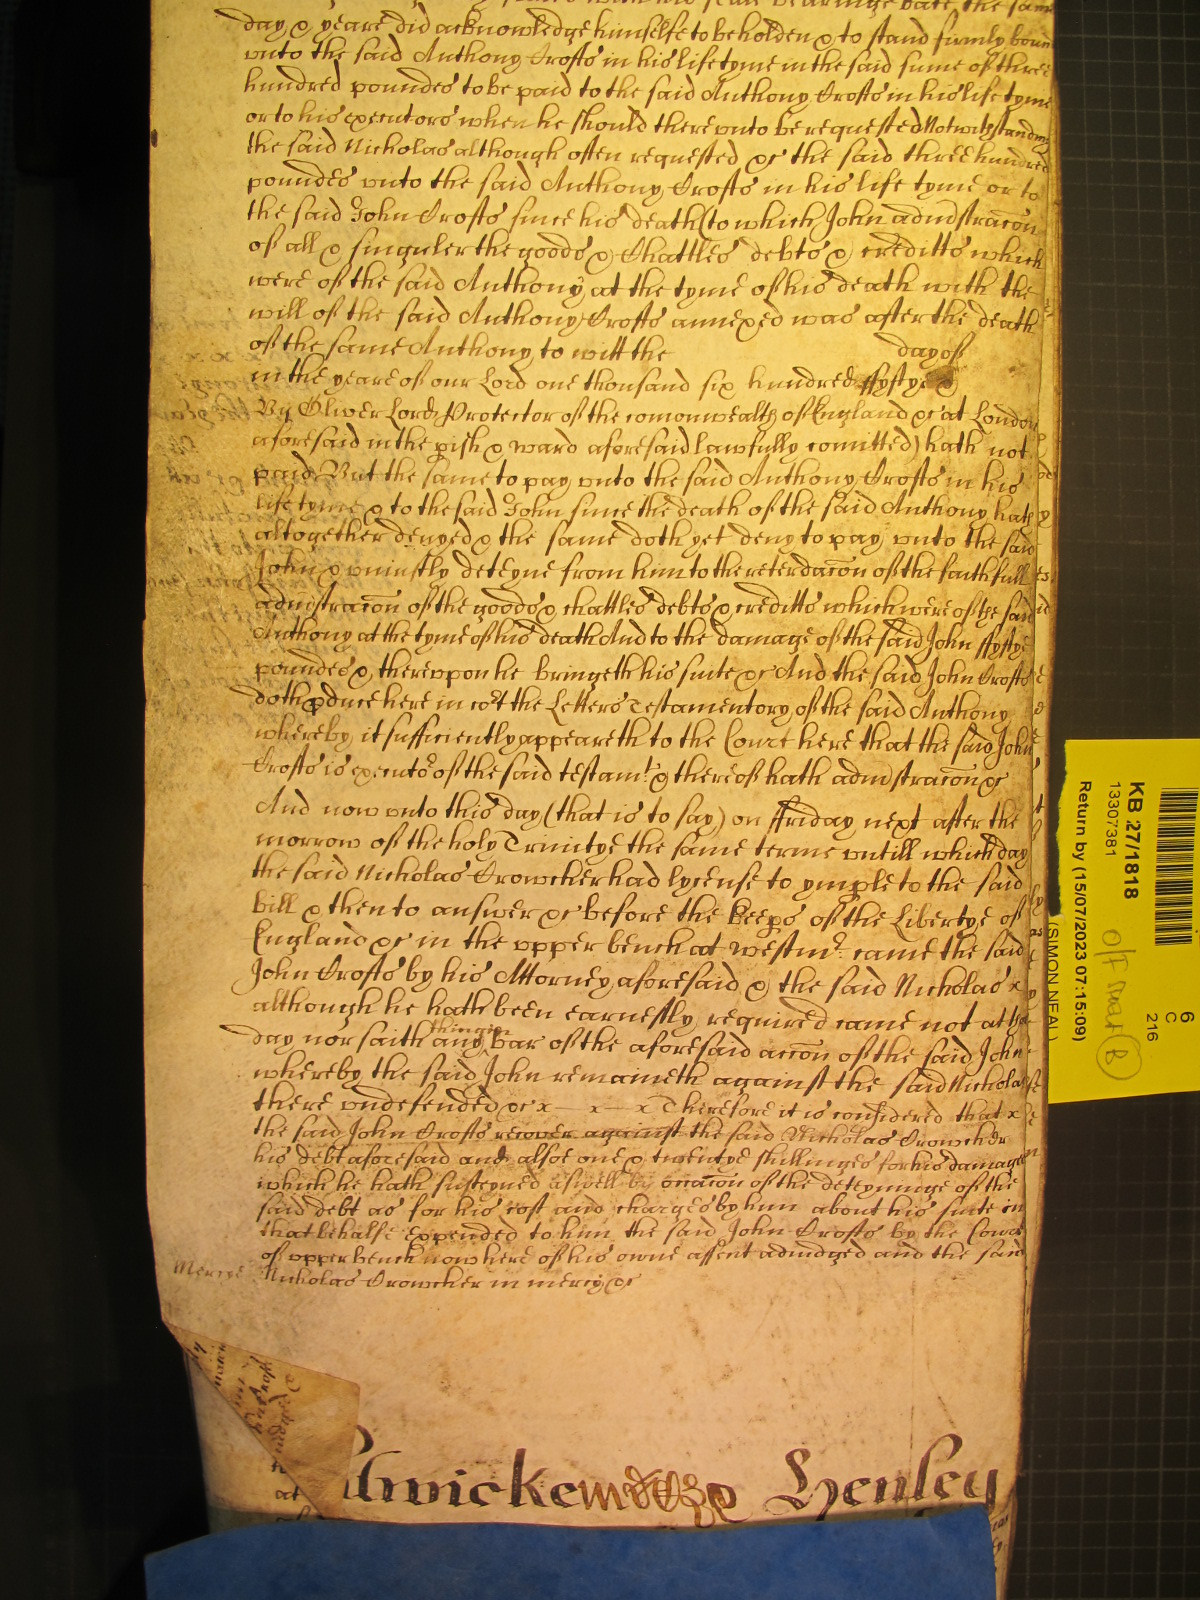 day & yeare did acknowledge himselfe to be holden & to stand firmly bound
vnto the said Anthony Crofts in his life tyme in the said sume of three
hundred poundes to be paid to the said Anthony Crofts in his life tyme
or to his executors when he should therevnto be requested Notwithstanding
the said Nicholas although often requested &c the said three hundred
poundes vnto the said Anthony Crofts in his life tyme or to
the said John Crofts since his death (to which John admstracon
of all & singuler the goods & Chattles debts & creditts which
were of the said Anthony at the tyme of his death with the
will of the said Anthony Crofts annexed was after the death
of the same Anthony to witt the day of
in the yeare of our Lord one thousand six hundred ffyftye &
By Oliver Lord Protector of the comonwealth of England &c at London
aforesaid in the pish & ward aforesaid lawfully comitted) hath not
paid But the same to pay vnto the said Anthony Crofts in his
life tyme & to the said John since the death of the said Anthony hath
altogether denyed & the same doth yet deny to pay vnto the said
John & vniustly deteyne from him to the reterdacon of the faithfull
admstracon of the goods & chattles debts & creditts which were of the said
Anthony at the tyme of his death And to the damage of the said John ffyftye
poundes & therevpon he bringeth his suite &c And the said John Crofts
doth pduce here in cort the Letters Testamentory of the said Anthony
whereby it sufficiently appeareth to the Court here that the said John
Crofts is executor of the said testamt & thereof hath admstracon &c
And now vnto this day (that is to say) on ffriday next after the
morrow of the holy Trinitye the same terme vntill which day
the said Nicholas Crowcher had lycense to ymple to the said
bill & then to answer &c before the keeps of the Libertye of
England &c in the vpper bench at westmr came the said
John Crofts by his Attorney aforesaid & the said Nicholas x
although he hath been earnestly required came not at the
day nor saith any thinge in bar of the aforesaid accon of the said John
whereby the said John remaineth against the said Nicholas
there vndefended &c x — x — x Therefore it is considered that x
the said John Crofts recover against the said Nicholas Crowcher
his debt aforesaid and alsoe one & twentye shillinges for his damages
which he hath susteyned aswell by occacon of the deteyninge of the
said debt as for his cost and charges by him about his suite in
that behalfe expended to him the said John Crofts by the Court
of vpper bench now here of his owne assent adiudged and the said
Mercye Nicholas Crowcher in mercy &c
Henley
KB 27/1818
13307381
Return by (15/07/2023 07:15:09)
(SIMON NEAL)
6
C
216